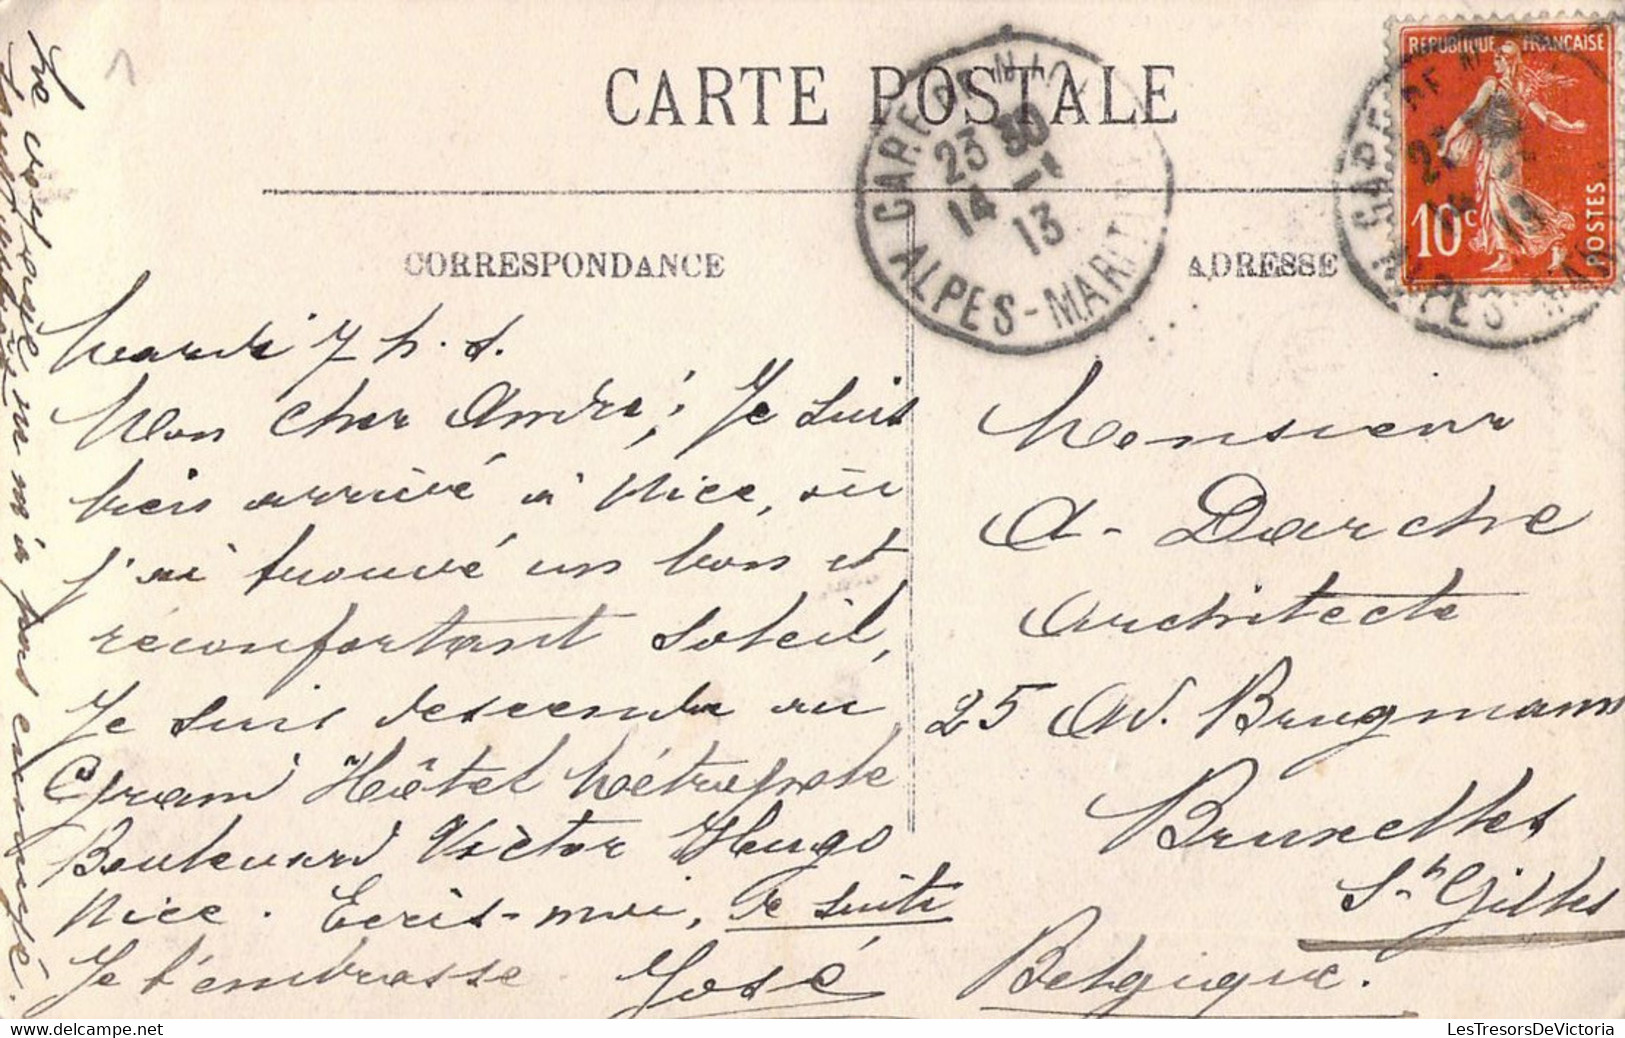 CARTE POSTALE
CORRESPONDANCE
ADRESSE
GARE DE NICE
23 30
14 -1
13
ALPES-MARIT
REPUBLIQUE FRANÇAISE
10c
POSTES
Mardi 7 h. s.
Mon cher André, Je suis
bien arrivé à Nice, où
j'ai trouvé un bon et
réconfortant soleil,
Je suis descendu au
Grand Hôtel Métropole
Boulevard Victor Hugo
Nice. Ecris-moi, de suite
Je t'embrasse José
m'a pas envoyé.
Monsieur
A. Darche
Architecte
25 Av. Brugmann
Bruxelles
St Gilles
Belgique.
LesTresorsDeVictoria
www.delcampe.net